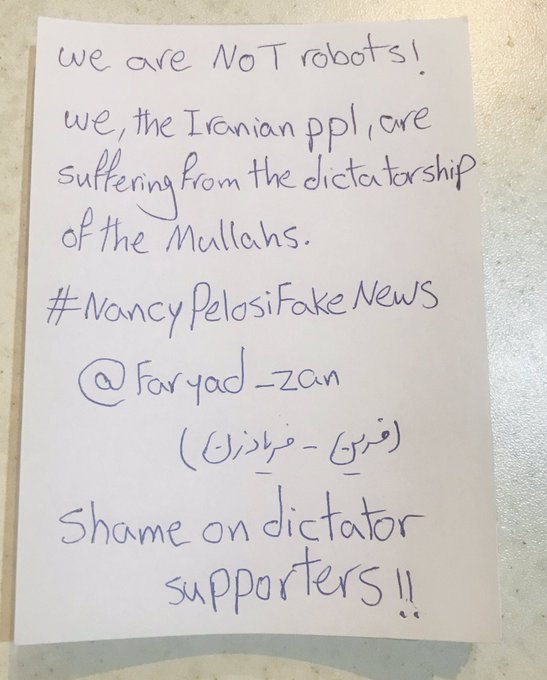 we are NOT robots!
we, the Iranian ppl, are
suffering from the dictatorship
of the Mullahs.
#NancyPelosiFakeNews
@Faryad_zan
(فرین - فریادزن)
Shame on dictator
supporters!!